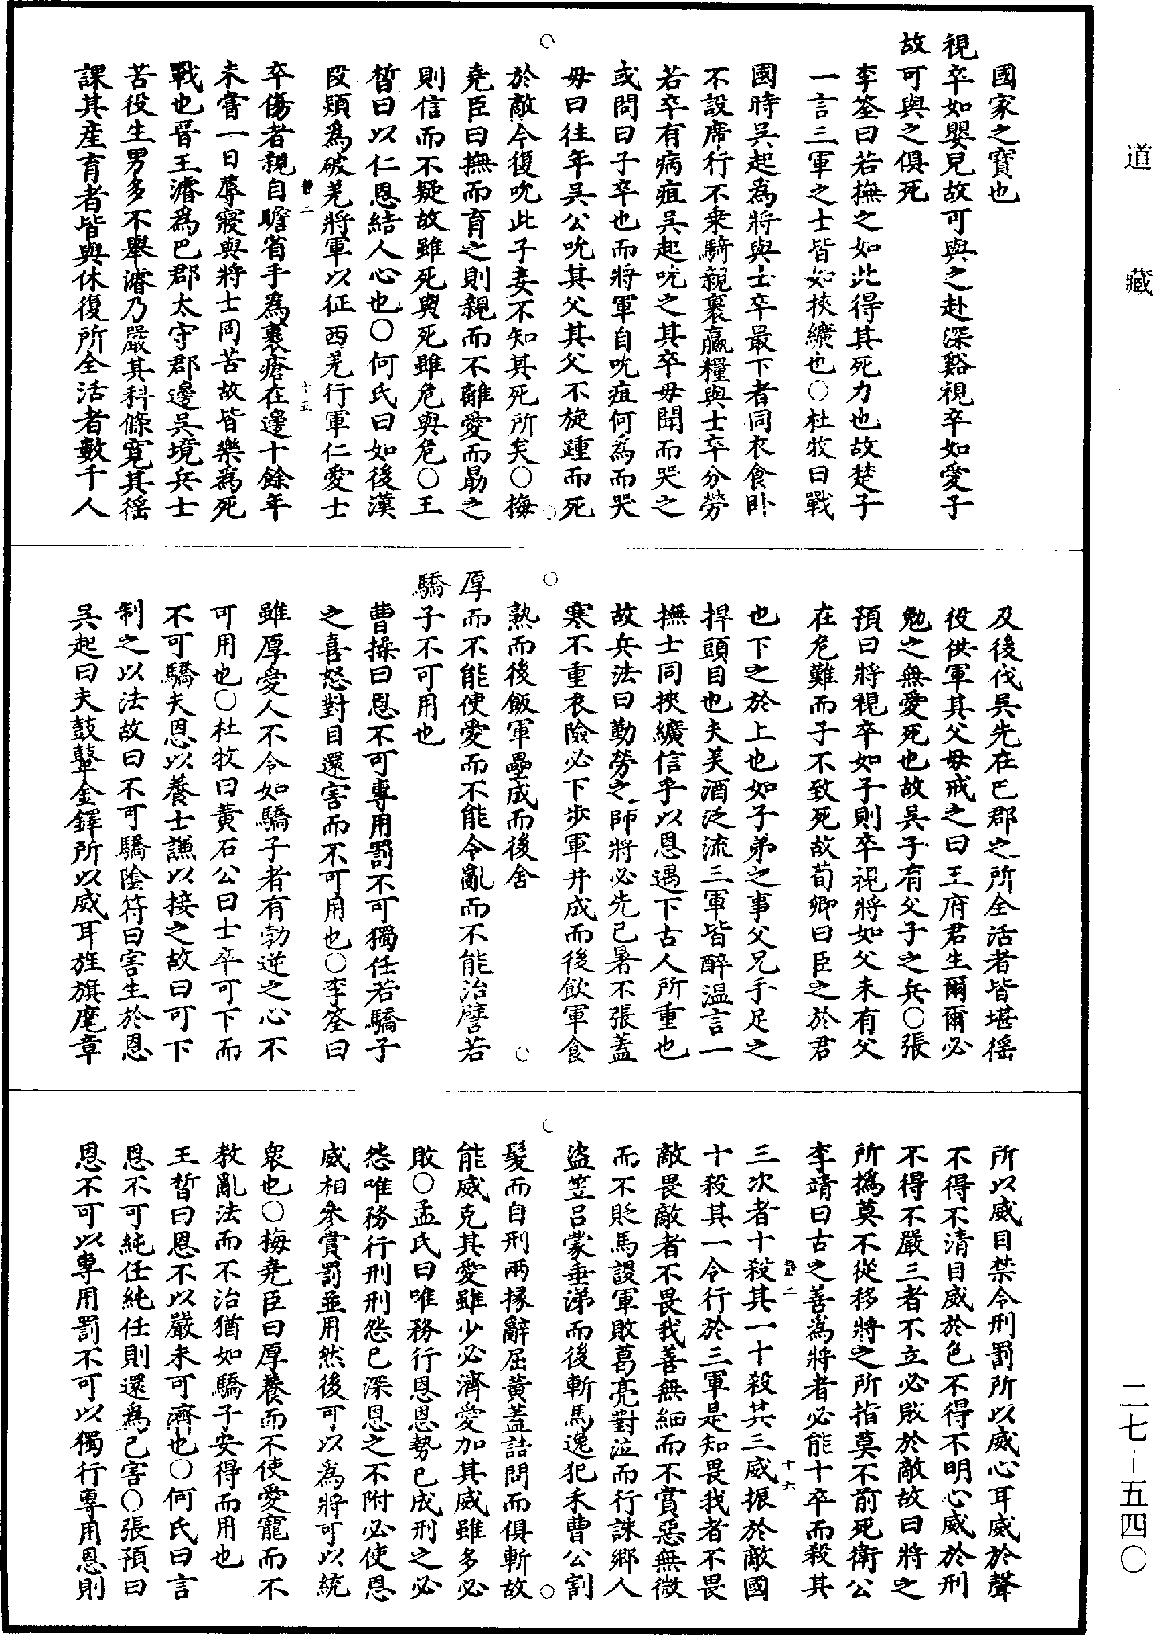 道藏
國家之寶也
視卒如嬰兒故可與之赴深谿視卒如愛子
故可與之俱死
李筌曰若撫之如此得其死力也故楚子
一言三軍之士皆如挾纊也○杜牧曰戰
國時吳起為將與士卒最下者同衣食卧
不設席行不乗騎親裹贏糧與士卒分勞
若卒有病疽吳起吮之其卒毋聞而哭之
或問曰子卒也而將軍自吮疽何為而哭
毋曰往年吳公吮其父其父不旋踵而死
於敵今復吮此子妾不知其死所矣○梅
堯臣曰撫而育之則親而不離愛而勗之
則信而不疑故雖死與死雖危與危○王
晳曰以仁恩結人心也○何氏曰如後漢
段熲為破羌將軍以征西羌行軍仁愛士
卒傷者親自瞻省手為裹瘡在邊十餘年
十五
未嘗一日蓐寢與將士同苦故皆樂為死
戰也晉王濬為巴郡太守郡邊吳境兵士
苦役生男多不舉濬乃嚴其科條寬其徭
課其產育者皆與休復所全活者數千人
及後伐吳先在巴郡之所全活者皆堪徭
役供軍其父毋戒之曰王府君生爾爾必
勉之無愛死也故吳子有父子之兵○張
預曰將視卒如子則卒視將如父未有父
在危難而子不致死故荀卿曰臣之於君
也下之於上也如子弟之事父兄手足之
捍頭目也夫美酒泛流三軍皆醉温言一
撫士同挾纊信乎以恩遇下古人所重也
故兵法曰勤勞之師將必先己暑不張蓋
寒不重衣險必下步軍井成而後飲軍食
熟而後飯軍壘成而後舍
厚而不能使愛而不能令亂而不能治譬若
驕子不可用也
曹操曰恩不可專用罰不可獨任若驕子
之喜怒對目還害而不可用也○李筌曰
雖厚愛人不令如驕子者有勃逆之心不
可用也○杜牧曰黄石公曰士卒可下而
不可驕夫恩以養士謙以接之故曰可下
制之以法故曰不可驕陰符曰害生於恩
吳起曰夫鼓鼙金鐸所以威耳旌旗麾章
所以威目禁令刑罰所以威心耳威於聲
不得不清目威於色不得不明心威於刑
不得不嚴三者不立必敗於敵故曰將之
所撝莫不從移將之所指莫不前死衛公
李靖曰古之善為將者必能十卒而殺其
十六
三次者十殺其一十殺其三威振於敵國
十殺其一令行於三軍是知畏我者不畏
敵畏敵者不畏我善無細而不賞惡無微
而不貶馬謖軍敗葛亮對泣而行誅鄉人
盜笠吕蒙垂涕而後斬馬逸犯禾曹公割
髮而自刑兩掾辭屈黄蓋詰問而俱斬故
能威克其愛雖少必濟愛加其威雖多必
敗○孟氏曰唯務行恩恩勢已成刑之必
怨唯務行刑刑怨已深恩之不附必使恩
威相参賞罰並用然後可以為將可以統
衆也○梅堯臣曰厚養而不使愛寵而不
教亂法而不治猶如驕子安得而用也
王晳曰恩不以嚴未可濟也○何氏曰言
恩不可純任純任則還為己害○張預曰
恩不可以專用罰不可以獨行專用恩則
二七-五四〇